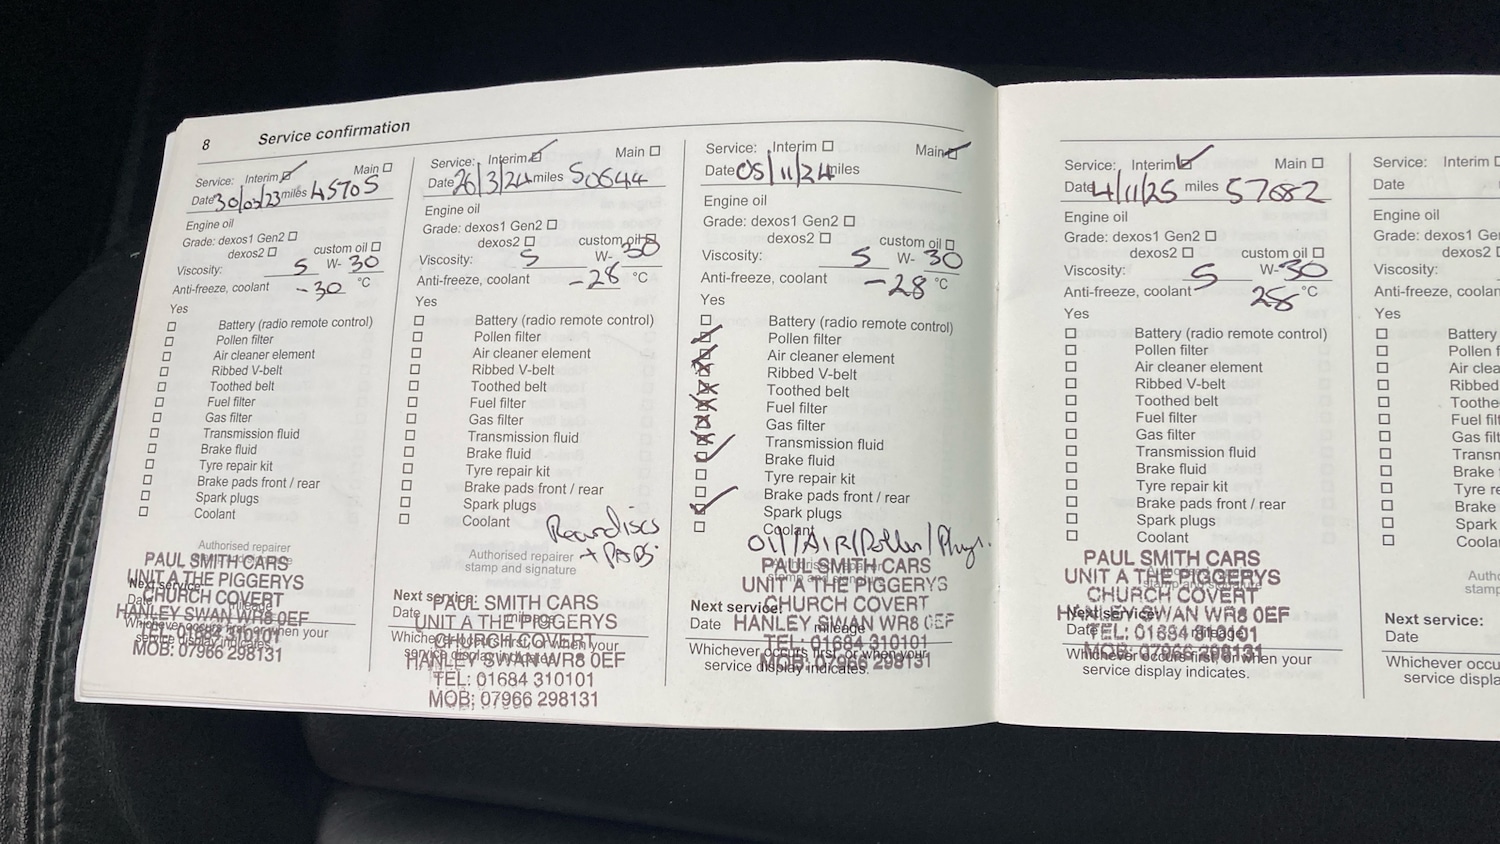 8 Service confirmation
Service: Interim Main
Date 30/03/23 miles 45705
Engine oil
Grade: dexos1 Gen2
dexos2 custom oil
Viscosity: 5 W- 30
Anti-freeze, coolant -30 °C
Yes
Battery (radio remote control)
Pollen filter
Air cleaner element
Ribbed V-belt
Toothed belt
Fuel filter
Gas filter
Transmission fluid
Brake fluid
Tyre repair kit
Brake pads front / rear
Spark plugs
Coolant
Authorised repairer
PAUL SMITH CARS
UNIT A THE PIGGERYS
Next service:
CHURCH COVERT
Date mileage
HANLEY SWAN WR8 0EF
Whichever occurs first, or when your
TEL: 01684 310101
service display indicates.
MOB: 07966 298131
Service: Interim Main
Date 26/3/24 miles 50644
Engine oil
Grade: dexos1 Gen2
dexos2 custom oil
Viscosity: 5 W- 30
Anti-freeze, coolant -28 °C
Yes
Battery (radio remote control)
Pollen filter
Air cleaner element
Ribbed V-belt
Toothed belt
Fuel filter
Gas filter
Transmission fluid
Brake fluid
Tyre repair kit
Brake pads front / rear
Spark plugs
Coolant
Rear discs
+ PADS.
Authorised repairer
stamp and signature
Next service:
PAUL SMITH CARS
Date mileage
UNIT A THE PIGGERYS
Whichever occurs first, or when your
CHURCH COVERT
service display indicates.
HANLEY SWAN WR8 0EF
TEL: 01684 310101
MOB: 07966 298131
Service: Interim Main
Date 05/11/24 miles
Engine oil
Grade: dexos1 Gen2
dexos2 custom oil
Viscosity: 5 W- 30
Anti-freeze, coolant -28 °C
Yes
Battery (radio remote control)
Pollen filter
Air cleaner element
Ribbed V-belt
Toothed belt
Fuel filter
Gas filter
Transmission fluid
Brake fluid
Tyre repair kit
Brake pads front / rear
Spark plugs
Coolant
Oil/AIR/Pollen/Plugs.
Authorised repairer
PAUL SMITH CARS
stamp and signature
UNIT A THE PIGGERYS
Next service:
CHURCH COVERT
Date mileage
HANLEY SWAN WR8 0EF
TEL: 01684 310101
Whichever occurs first, or when your
MOB: 07966 298131
service display indicates.
Service: Interim Main
Date 4/11/25 miles 57682
Engine oil
Grade: dexos1 Gen2
dexos2 custom oil
Viscosity: 5 W- 30
Anti-freeze, coolant 28 °C
Yes
Battery (radio remote control)
Pollen filter
Air cleaner element
Ribbed V-belt
Toothed belt
Fuel filter
Gas filter
Transmission fluid
Brake fluid
Tyre repair kit
Brake pads front / rear
Spark plugs
Coolant
PAUL SMITH CARS
Authorised repairer
UNIT A THE PIGGERYS
stamp and signature
CHURCH COVERT
Next service:
HANLEY SWAN WR8 0EF
Date mileage
TEL: 01684 310101
MOB: 07966 298131
Whichever occurs first, or when your
service display indicates.
Service: Interim
Date
Engine oil
Grade: dexos1 Ge
dexos2
Viscosity:
Anti-freeze, coolan
Yes
Battery
Pollen f
Air clea
Ribbed
Toothe
Fuel filt
Gas filt
Transm
Brake
Tyre re
Brake
Spark
Coola
Autho
stamp
Next service:
Date
Whichever occu
service displa